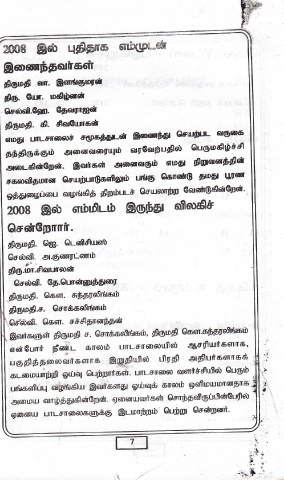 2008 இல் புதிதாக எம்முடன்
இணைந்தவர்கள்
திருமதி வா. இளங்குமரன்
திரு. யோ. மகிழ்னன்
செல்வி.ஹே. தேவராஜன்
திருமதி. கி. சிவயோகன்
எமது பாடசாலைச் சமூகத்துடன் இணைந்து செயற்பட வருகை
தந்திருக்கும் அனைவரையும் வரவேற்பதில் பெருமகிழ்ச்சி
அடைகின்றேன். இவர்கள் அனைவரும் எமது நிறுவனத்தின்
சகலவிதமான செயற்பாடுகளிலும் பங்கு கொண்டு தமது பூரண
ஒத்துழைப்பை வழங்கித் திறம்படச் செயலாற்ற வேண்டுகின்றேன்.
2008 இல் எம்மிடம் இருந்து விலகிச்
சென்றோர்.
திருமதி. ஜெ. டெனிசியஸ்
செல்வி. அ.குணரட்ணம்
திரு.மா.சிவபாலன்
செல்வி. தே.பொன்னுத்துரை
திருமதி. கௌ. சுந்தரலிங்கம்
திருமதி.ச. சொக்கலிங்கம்
செல்வி. கௌ. சச்சிதானந்தன்
இவர்களுள் திருமதி ச. சொக்கலிங்கம், திருமதி கௌ.சுந்தரலிங்கம்
என்போர் நீண்ட காலம் பாடசாலையில் ஆசரியர்களாக,
பகுதித்தலைவர்களாக இறுதியில் பிரதி அதிபர்களாகக்
கடமையாற்றி ஓய்வு பெற்றார்கள். பாடசாலை வளர்ச்சியில் பெரும்
பங்களிப்பு வழங்கிய இவர்களது ஓய்வுக் காலம் ஒளிமயமானதாக
அமைய வாழ்த்துகின்றேன். ஏனையவர்கள் சொந்தவிருப்பின்பேரில்
ஏனைய பாடசாலைகளுக்கு இடமாற்றம் பெற்று சென்றனர்.
7